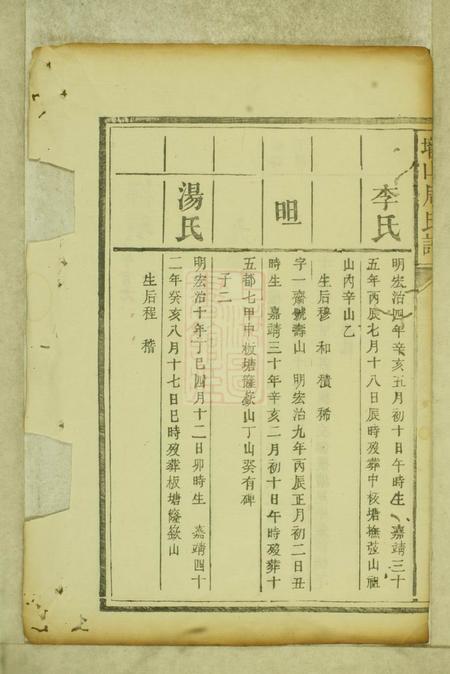 山周氏
李氏
明宏治四年辛亥五月初十日午時生 嘉靖三十
五年丙辰七月十八日辰時歿葬中板塘撫弦山祖
山內辛山乙
生后穆 和 積 稀
字一齋號壽山 明宏治九年丙辰正月初二日丑
時生 嘉靖三十年辛亥二月初十日午時歿葬十
五都七甲中板塘窿嶽山丁山癸有碑
子二
湯氏
明宏治十年丁巳四月十二日卯時生 嘉靖四十
二年癸亥八月十七日巳時歿葬板塘窿嶽山
生后程 稽